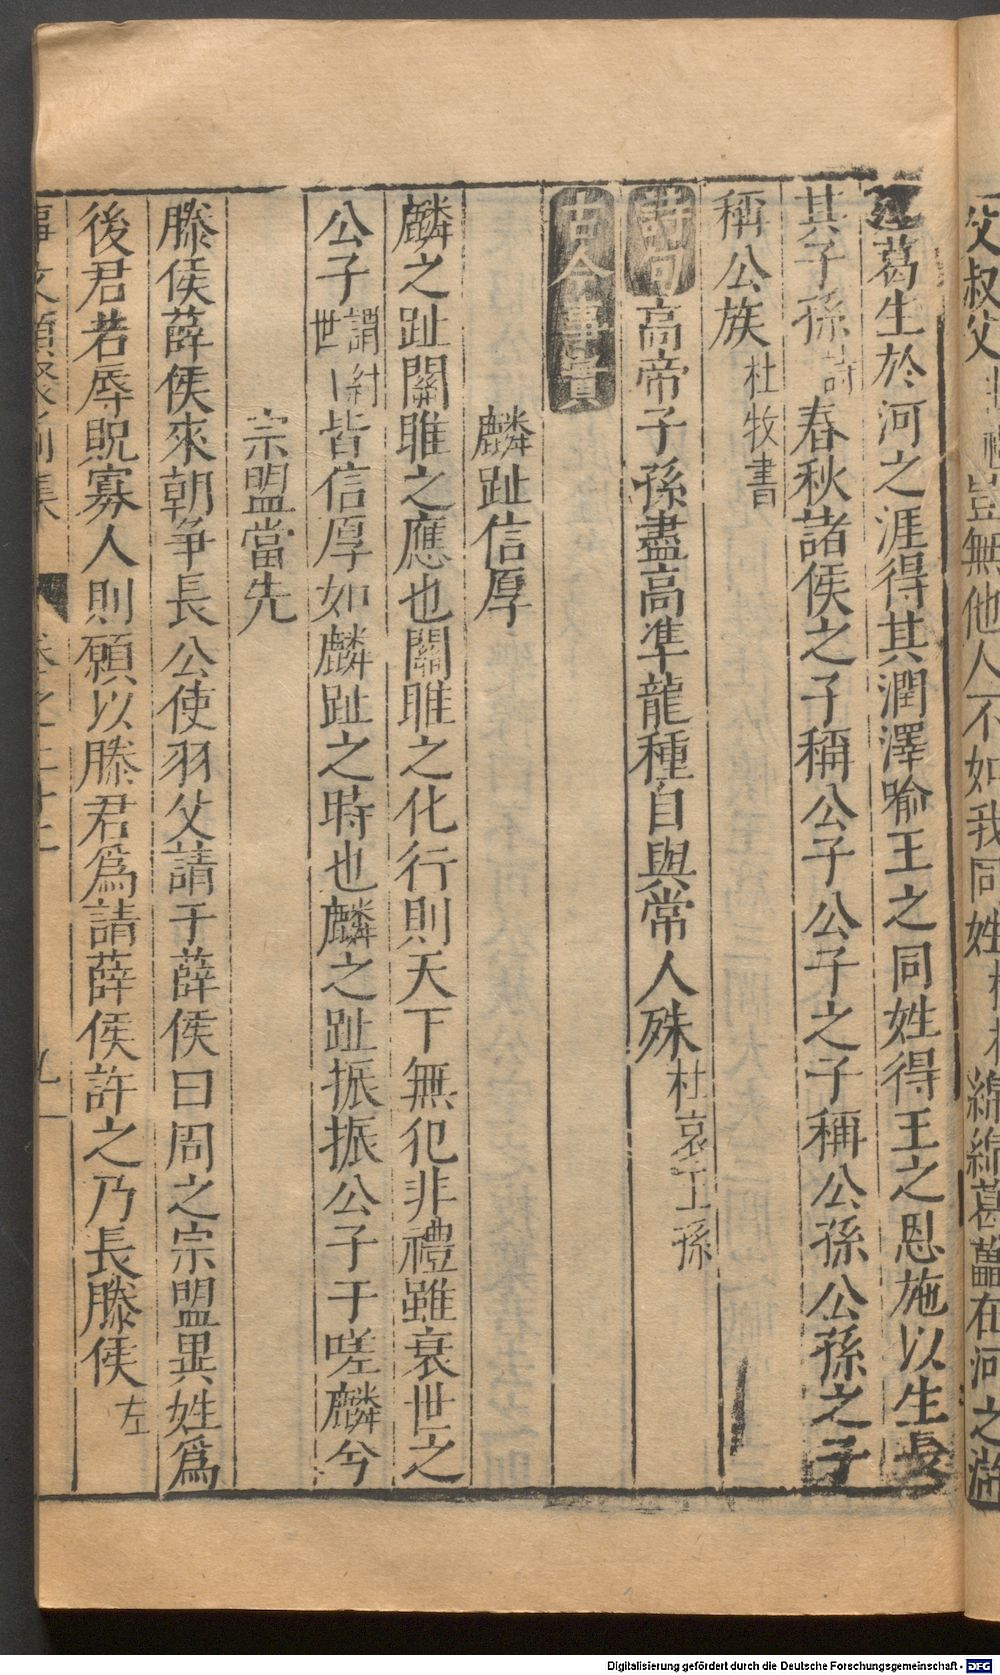 父叔父
豈無他人不如我同姓
綿綿葛藟在河之滸
葛生於河之涯得其潤澤喻王之同姓得王之恩施以生長
其子孫詩春秋諸侯之子稱公子公子之子稱公孫公孫之子
稱公族杜牧書
詩句高帝子孫盡高準龍種自與常人殊杜哀王孫
古今事實
麟趾信厚
麟之趾關雎之應也關雎之化行則天下無犯非禮雖衰世之
公子謂紂世皆信厚如麟趾之時也麟之趾振振公子于嗟麟兮
宗盟當先
滕侯薛侯來朝争長公使羽父請于薛侯曰周之宗盟異姓爲
後君若辱貺寡人則願以滕君爲請薛侯許之乃長滕侯左
事文類聚
Digitalisierung gefördert durch die Deutsche Forschungsgemeinschaft - DFG